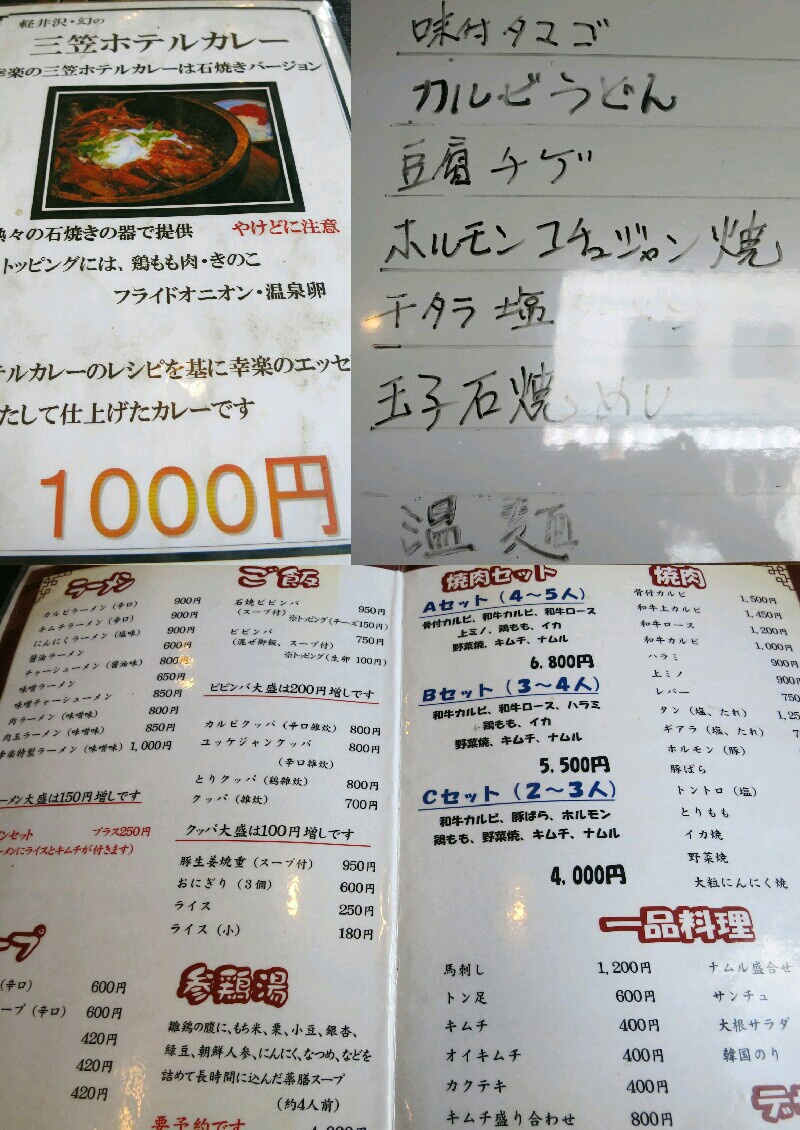 軽井沢・幻の
三笠ホテルカレー
幸楽の三笠ホテルカレーは石焼きバージョン
熱々の石焼きの器で提供 やけどに注意
トッピングには、鶏もも肉・きのこ
フライドオニオン・温泉卵
テルカレーのレシピを基に幸楽のエッセ
たして仕上げたカレーです
1000円
味付タマゴ
カルビうどん
豆腐チゲ
ホルモンコチュジャン焼
干タラ塩
玉子石焼めし
温麺
ラーメン
カルビラーメン（辛口） 900円
キムチラーメン（辛口） 900円
にんにくラーメン（塩味） 900円
醤油ラーメン 600円
チャーシューメン（醤油味） 800円
味噌ラーメン 650円
味噌チャーシューメン 850円
肉ラーメン（味噌味） 800円
肉玉ラーメン（味噌味） 850円
幸楽特製ラーメン（味噌味） 1,000円
ーメン大盛は150円増しです
ンセット プラス250円
ーメンにライスとキムチが付きます）
ープ
（辛口） 600円
ープ（辛口） 600円
420円
420円
420円
ご飯
石焼ビビンバ 950円
（スープ付） ※トッピング（チーズ150円）
ビビンバ 750円
（混ぜ御飯、スープ付）
※トッピング（生卵 100円）
ビビンバ大盛は200円増しです
カルビクッパ（辛口雑炊） 800円
ユッケジャンクッパ 800円
（辛口雑炊）
とりクッパ（鶏雑炊） 800円
クッパ（雑炊） 700円
クッパ大盛は100円増しです
豚生姜焼重（スープ付） 950円
おにぎり（3個） 600円
ライス 250円
ライス（小） 180円
参鶏湯
雛鶏の腹に、もち米、栗、小豆、銀杏、
緑豆、朝鮮人参、にんにく、なつめ、などを
詰めて長時間に込んだ薬膳スープ
（約4人前）
要予約です
焼肉セット
Aセット（4〜5人）
骨付カルビ、和牛カルビ、和牛ロース
上ミノ、鶏もも、イカ
野菜焼、キムチ、ナムル
6.800円
Bセット（3〜4人）
和牛カルビ、和牛ロース、ハラミ
鶏もも、イカ
野菜焼、キムチ、ナムル
5.500円
Cセット（2〜3人）
和牛カルビ、豚ばら、ホルモン
鶏もも、野菜焼、キムチ、ナムル
4,000円
焼肉
骨付カルビ 1,500円
和牛上カルビ 1,450円
和牛ロース 1,200円
和牛カルビ 1,000円
ハラミ 900円
上ミノ 900円
レバー 750
タン（塩、たれ） 1,25
ギアラ（塩、たれ）
ホルモン（豚）
豚ばら
トントロ（塩）
とりもも
イカ焼
野菜焼
大粒にんにく焼
一品料理
馬刺し 1,200円
トン足 600円
キムチ 400円
オイキムチ 400円
カクテキ 400円
キムチ盛り合わせ 800円
ナムル盛合せ
サンチュ
大根サラダ
韓国のり
デザ